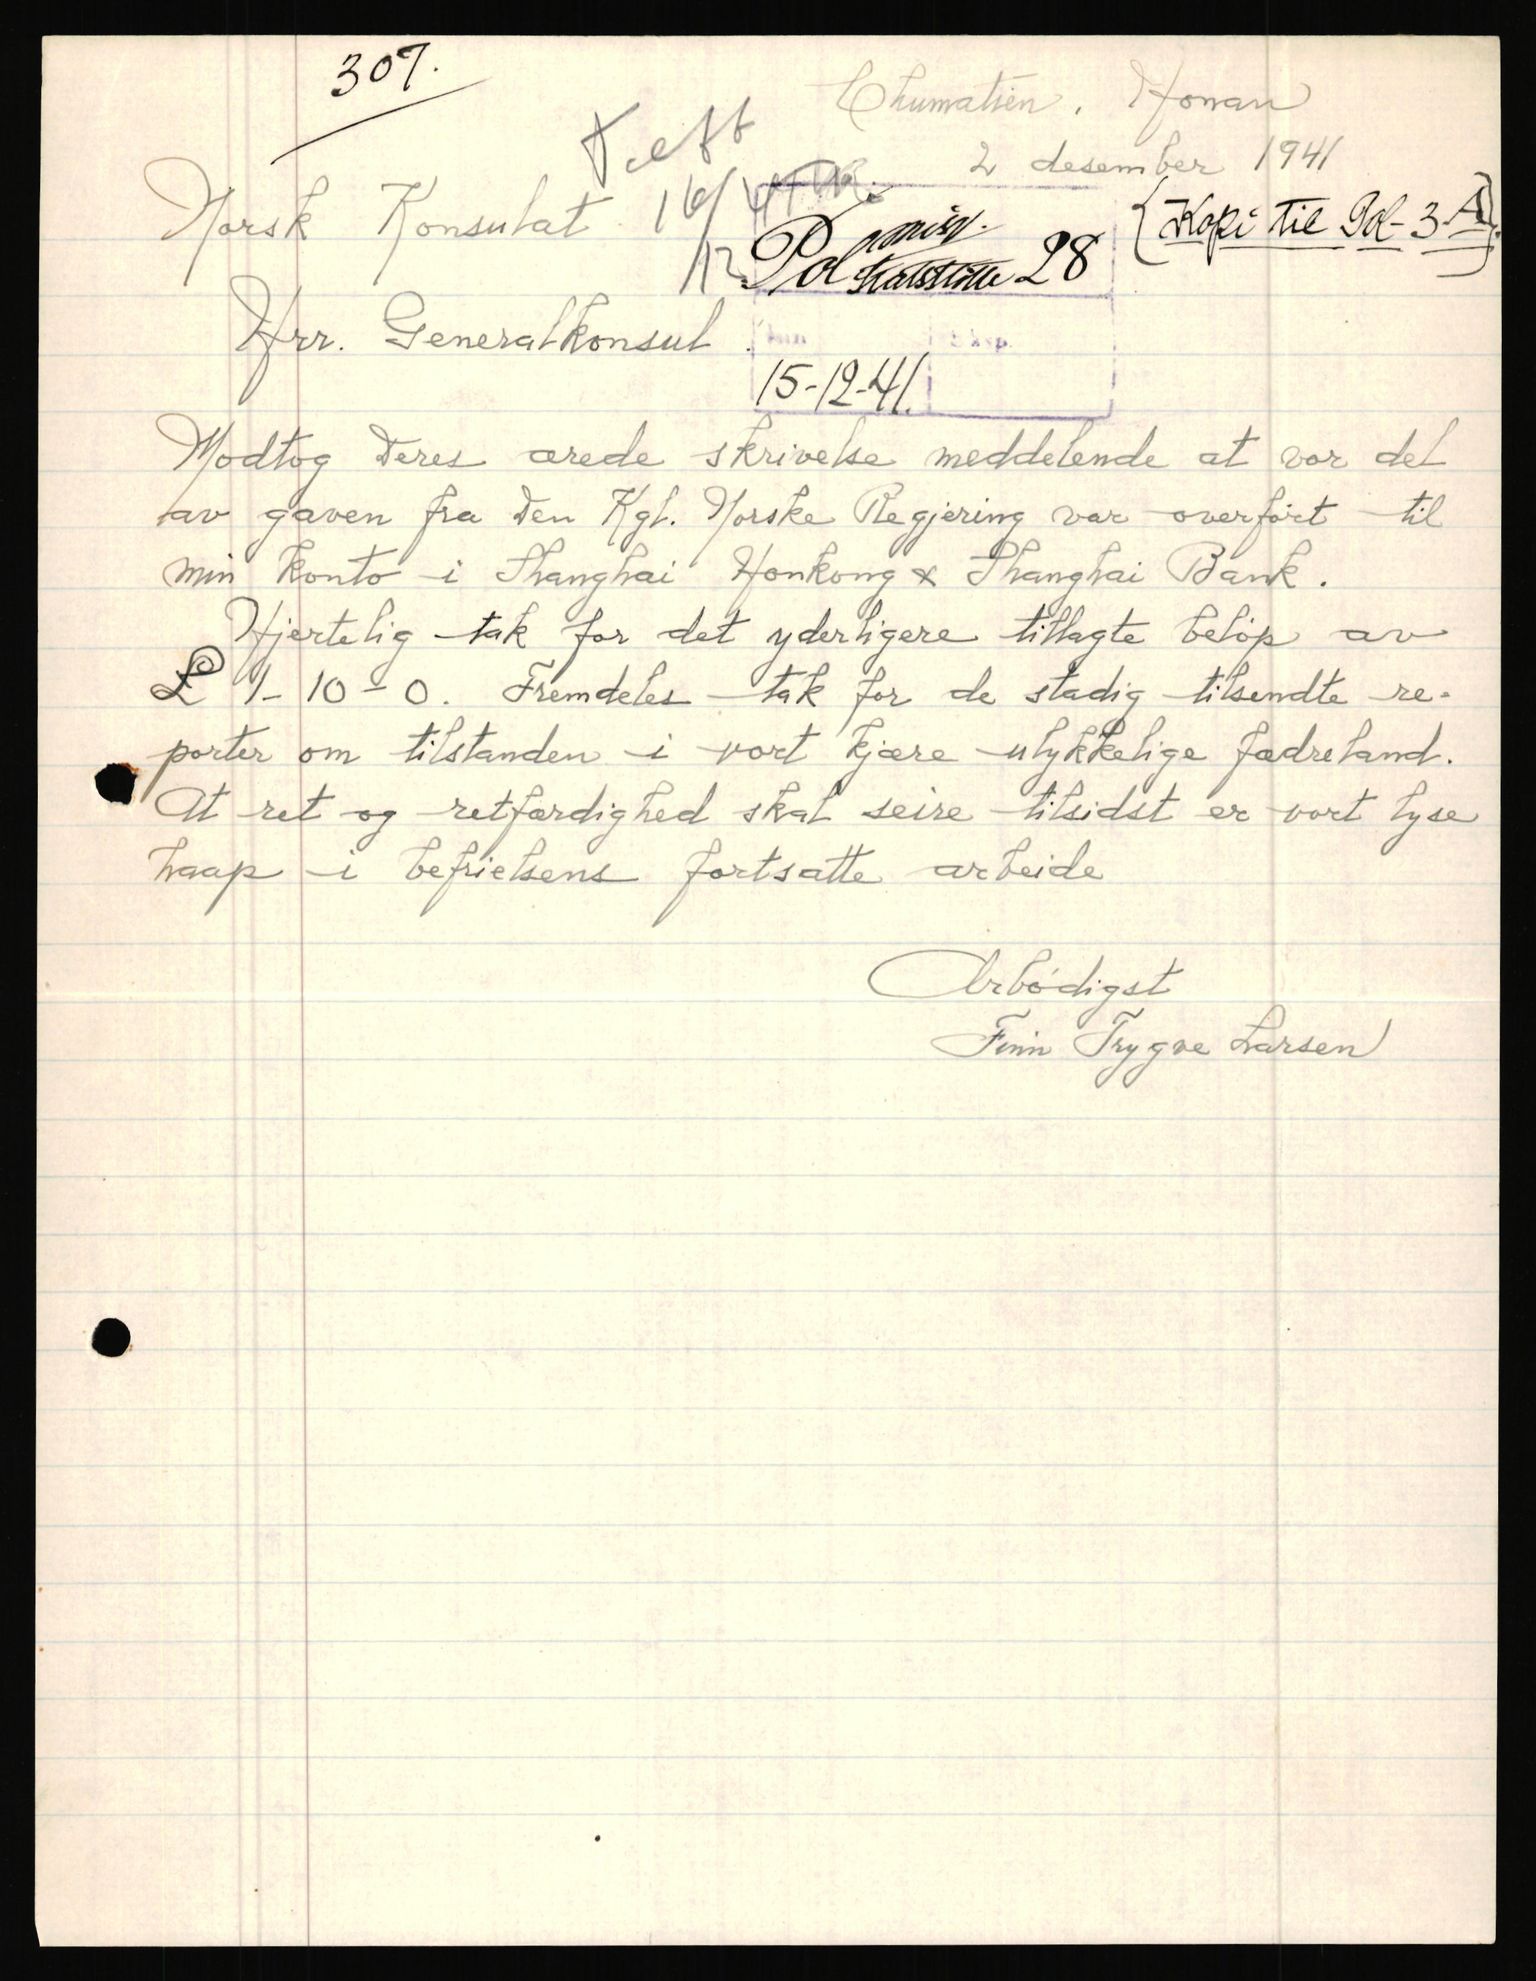 307.
Chumatien, Honan
2 desember 1941
Norsk Konsulat
16/
12
{Kopi til Pol-3-A}.
Pol misj. statsstøtte 28
Hrr. Generalkonsul.
15-12-41.
Modtog Deres ærede skrivelse meddelende at vor del
av gaven fra Den Kgl. Norske Regjering var overført til
min konto i Shanghai Honkong & Shanghai Bank.
Hjertelig tak for det yderligere tillagte beløp av
£ 1-10-0. Fremdeles tak for de stadig tilsendte re-
porter om tilstanden i vort kjære ulykkelige fædreland.
At ret og retfærdighed skal seire tilsidst er vort lyse
haap i befrielsens fortsatte arbeide
Ærbødigst
Finn Trygve Larsen